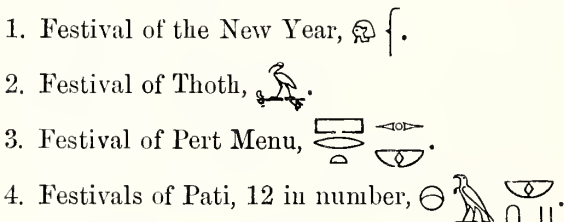 1. Festival of the New Year, 𓁶 𓆳.
2. Festival of Thoth, 𓅝.
3. Festival of Pert Menu,
4. Festivals of Pati, 12 in number,